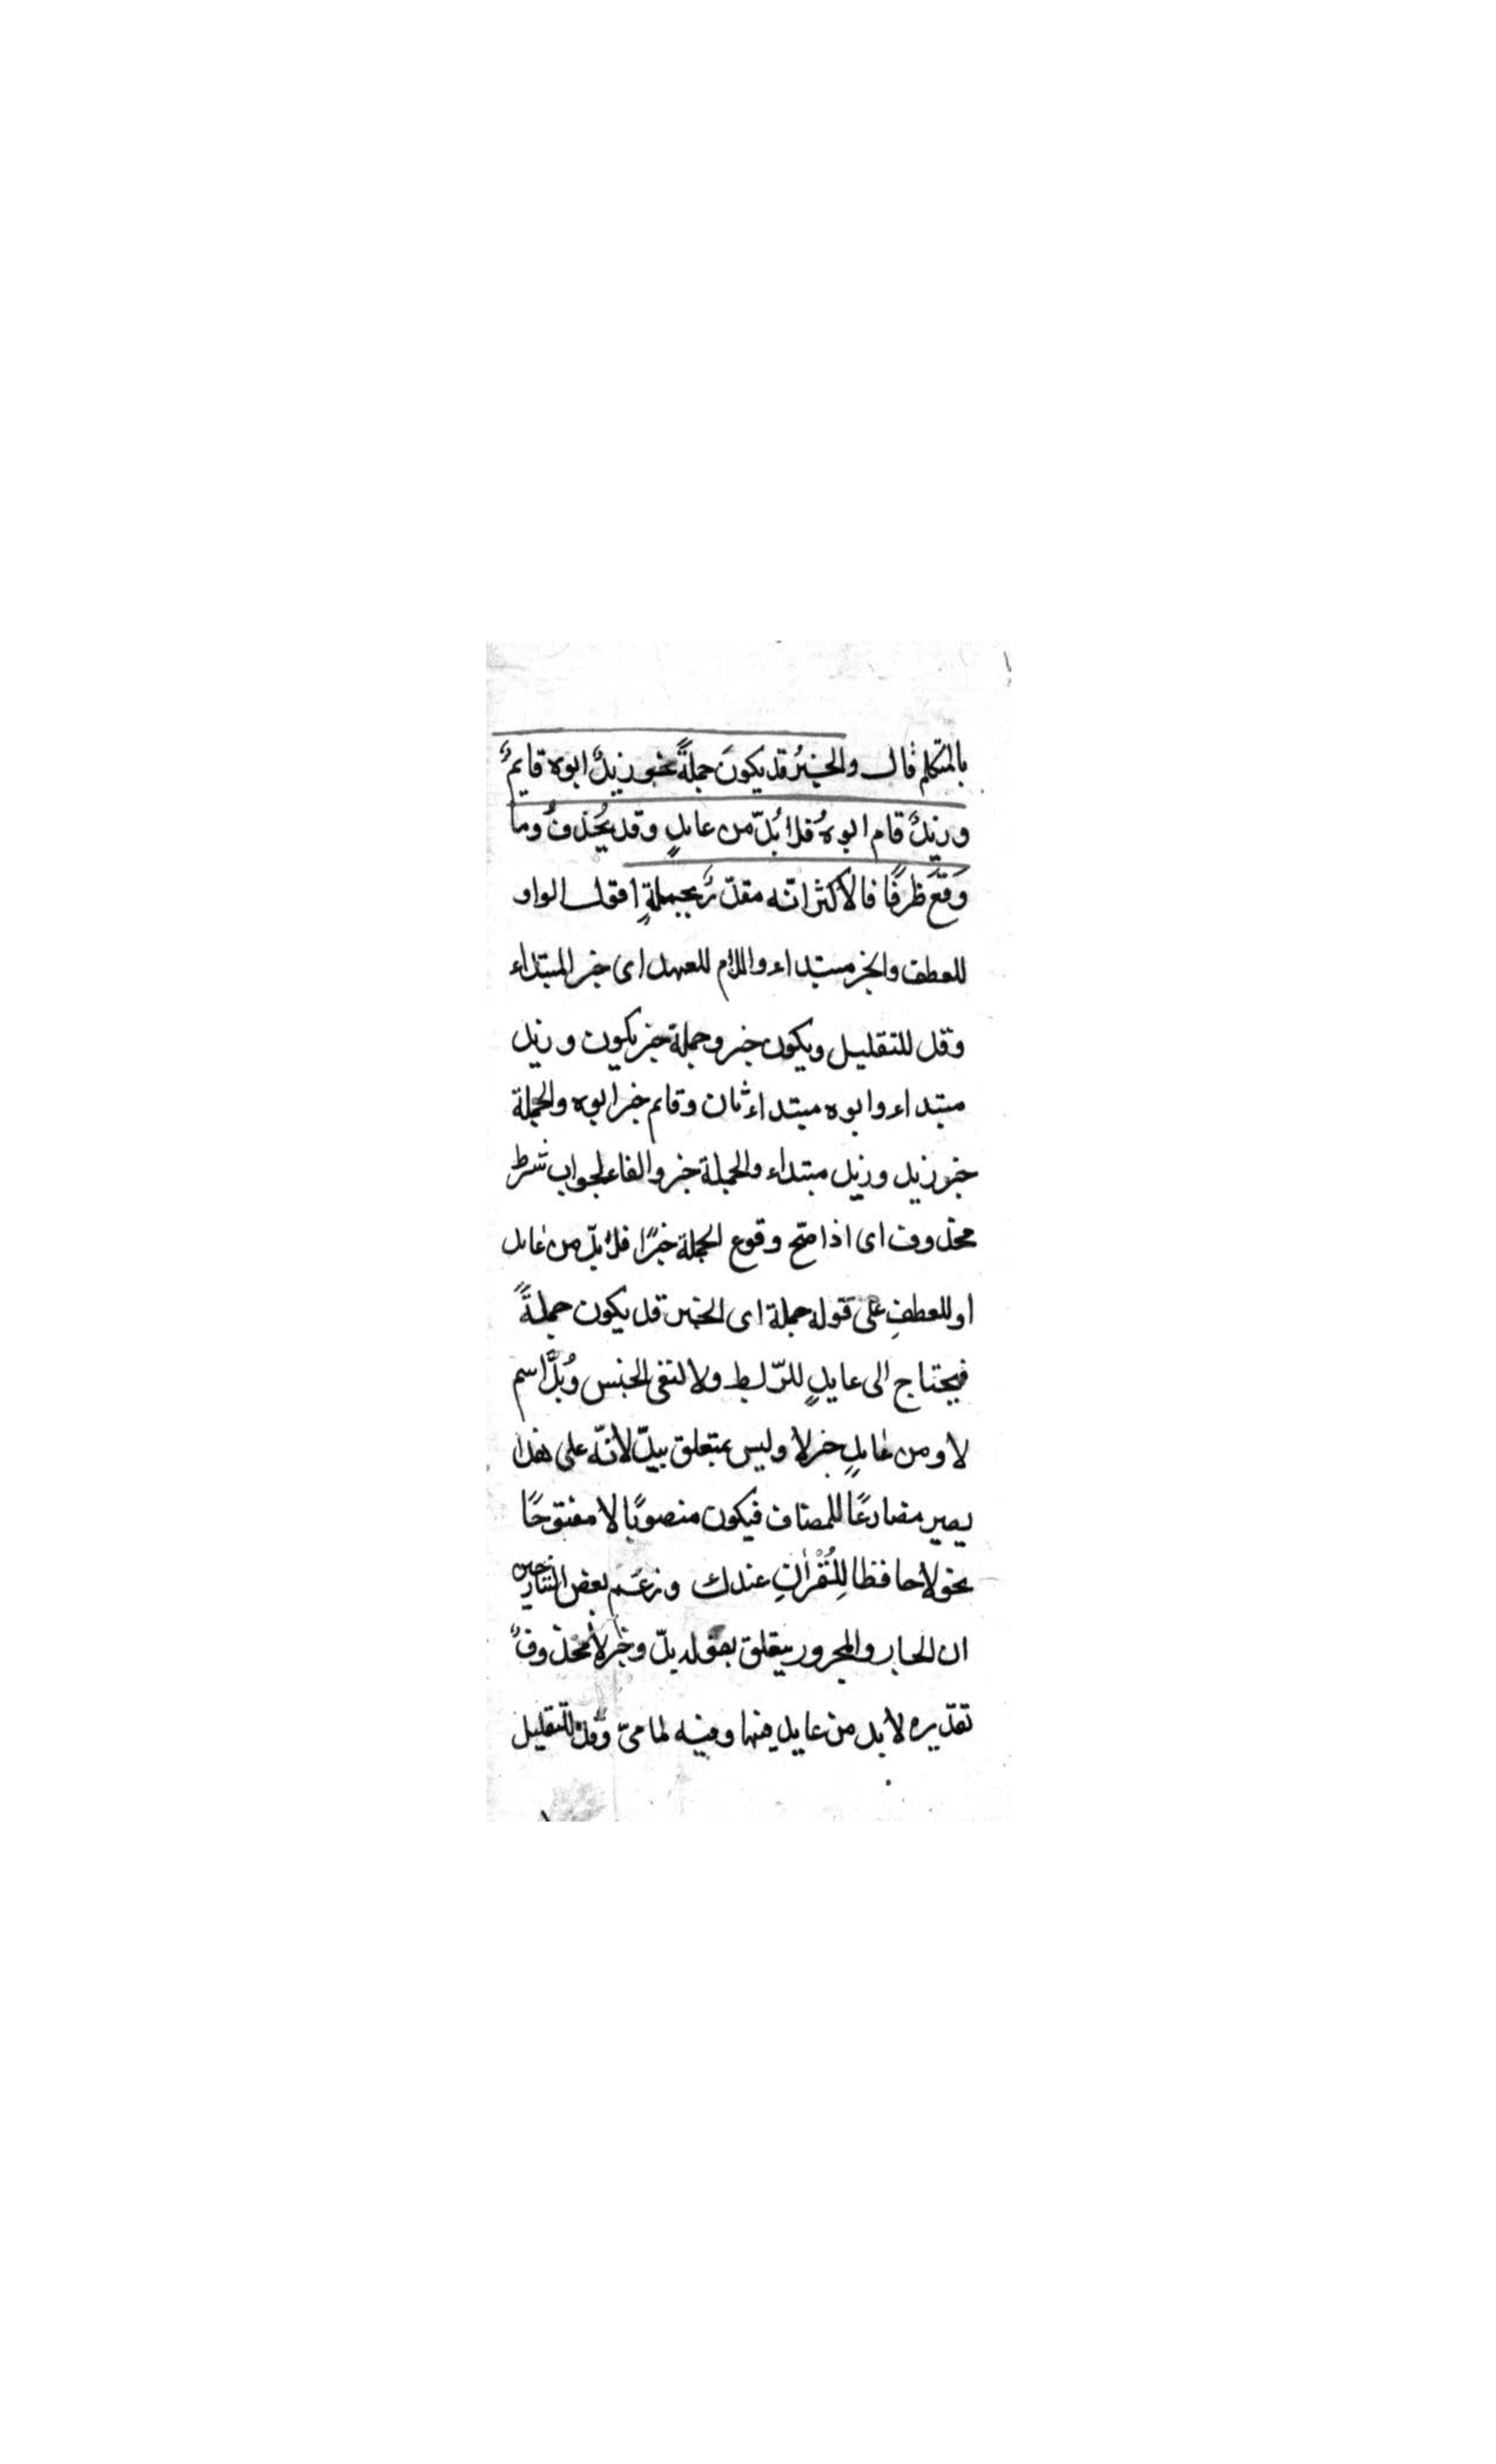 بالمتكلم قال والخبرُ قد يكونَ جملةً نحو زيدٌ ابوه قايمٌ
وزيدٌ قام ابوهُ فلا بُدّ من عايدٍ وقد يُحذفُ وما
وَقَعَ ظرفًا فالأكثر انّه مقدّرٌ بجملةٍ اقول الواو
للعطف والخبر مبتداء واللام للعهد اى خبر المبتداء
وقد للتقليل ويكون خبر وجملة خبر يكون وزيد
مبتداء وابوه مبتداء ثان وقايم خبر ابوه والجملة
خبر زيد وزيد مبتداء والجملة خبر والفاء لجواب شرط
محذوف اى اذا صّح وقوع الجملة خبرًا فلا بدّ من عايد
او للعطفِ على قوله جملة اى الخبر قد يكون جملةً
فيحتاج الى عايدٍ للرّبط ولا لنفى الجنس وبُدَّ اسم
لا ومن عايدٍ خبر لا وليس بمتعلق ببدّ لأنّه على هذا
يصير مضارعًا للمضاف فيكون منصوبًا لا مفتوحًا
نحو لا حافظا لِلْقُرْاٰنِ عندك وزعَم بعض الشارحين
ان الجار والمجرور يتعلق بقوله بدّ وخبر لا محذوفٌ
تقديره لا بد من عايد فيها وفيه لما مرّ وقد للتقليل